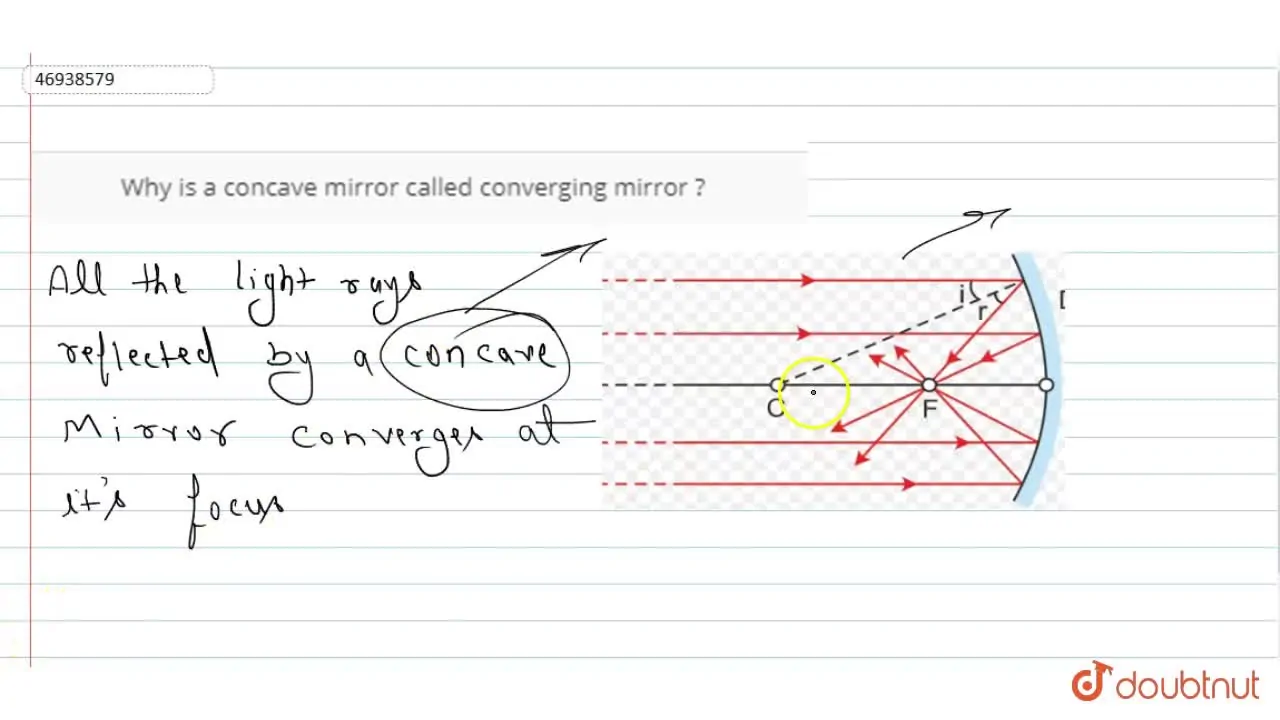 46938579
Why is a concave mirror called converging mirror ?
All the light rays
reflected by a concave
Mirror converges at
it's focus
i
r
D
C
F
doubtnut